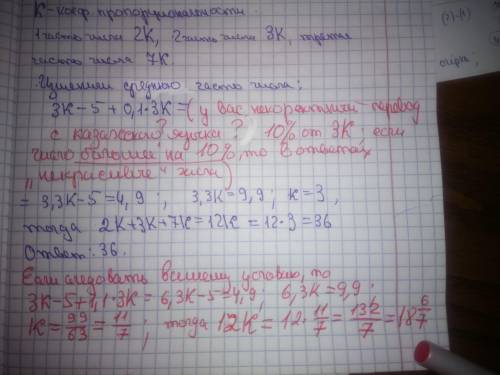 К-коэф. пропорциональности.
1 часть числа 2К, 2 часть числа 3К, третья
часть числа 7К.
среднюю часть числа;
3К-5+0,1·3К=(у вас некоректный перевод
с казахского языка? 10% от 3К; если
число больший на 10%, то в ответах
„некрасивые" числа)
= 3,3К-5=4,9; 3,3К=9,9; К=3,
тогда 2К+3К+7К=12К=12·3=36
Ответ: 36.
Если следовать вашему условию, то
3К-5+1,1·3К=6,3К-5=4,9; 6,3К=9,9;
К=99/63=11/7; тогда 12К=12·11/7=132/7=18 6/7
(2)-(1)